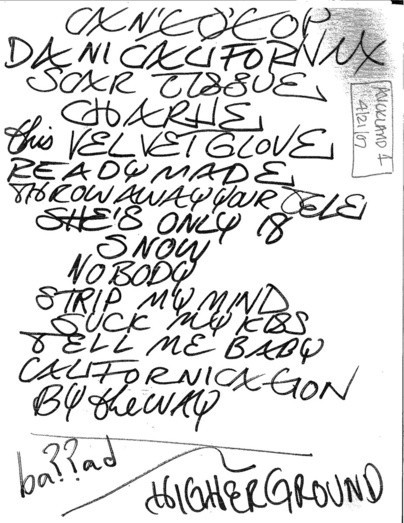 CAN'O'COP
DANI CALIFORNIX
SCAR TISSUE
CHARLIE
this VELVET GLOVE
READYMADE
THROW AWAY YOUR TELE
SHE'S ONLY 18
SNOW
NOBODY
STRIP MY MIND
SUCK MY KISS
TELL ME BABY
CALIFORNICX-GON
BY the WAY
ba??ad
HIGHER GROUND
AUCKLAND 1
4/21/07